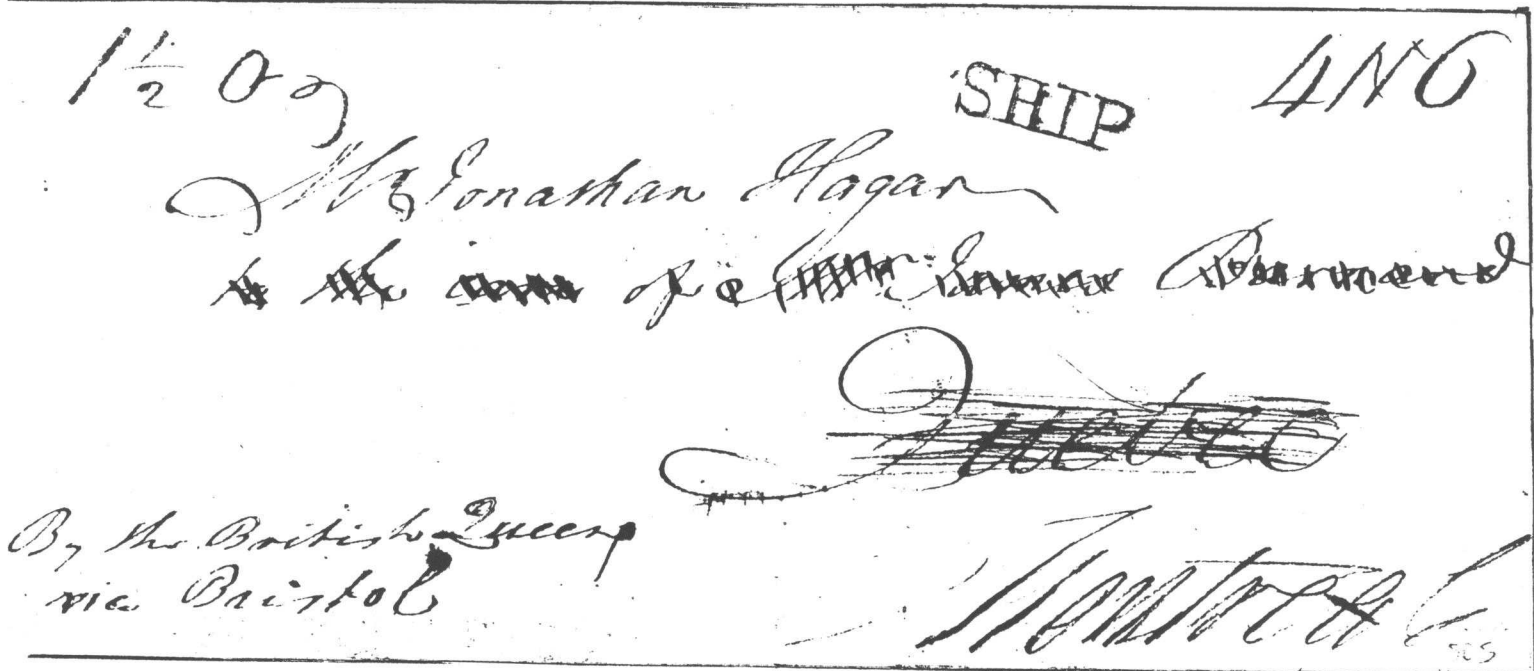 1 1/2 Oz
SHIP
4N6
Mr Jonathan Hagar
to the care of
Quebec
By the British Queen
via Bristol
Montreal